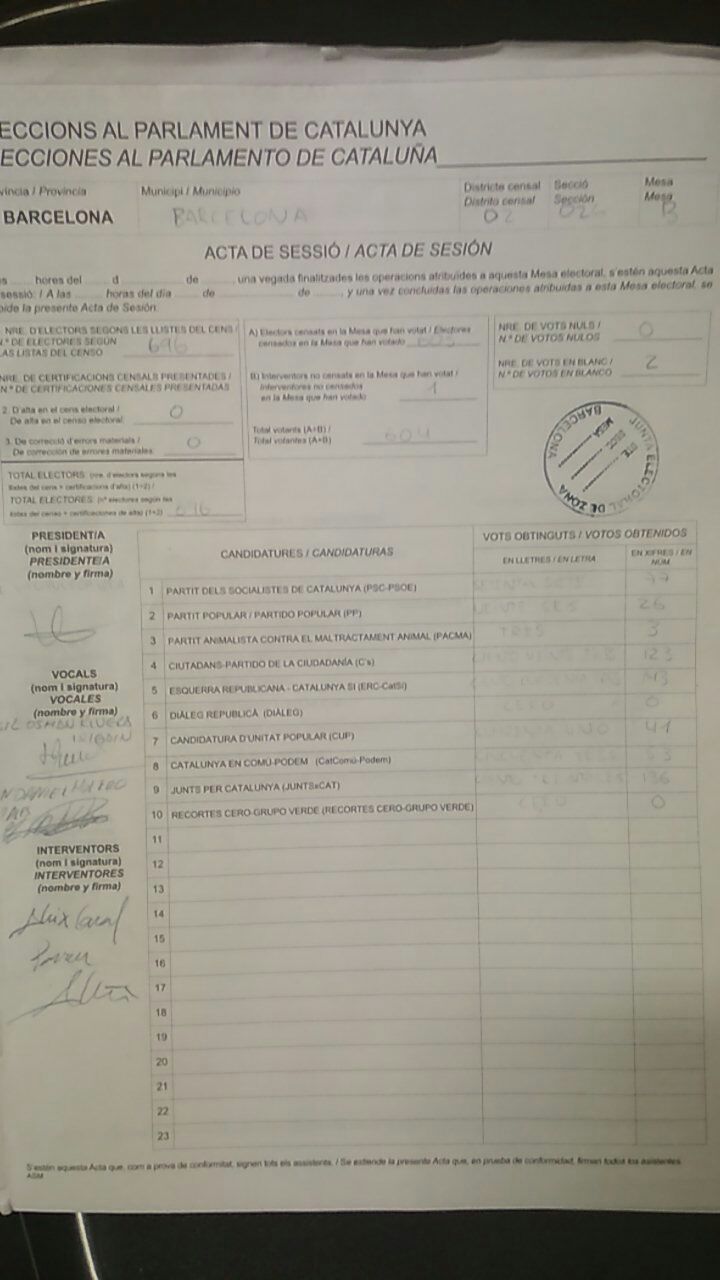 ECCIONS AL PARLAMENT DE CATALUNYA
ECCIONES AL PARLAMENTO DE CATALUÑA
víncia / Provincia Municipi / Municipio Districte censal Secció Mesa
Distrito censal Sección Mesa
BARCELONA BARCELONA 02 B
ACTA DE SESSIÓ / ACTA DE SESIÓN
hores del d de una vegada finalitzades les operacions atribuïdes a aquesta Mesa electoral, s'estén aquesta Acta
sessió: / A las horas del día de de y una vez concluidas las operaciones atribuidas a esta Mesa electoral, se
ide la presente Acta de Sesión:
NRE. D'ELECTORS SEGONS LES LLISTES DEL CENS /
N.º DE ELECTORES SEGÚN 696
LAS LISTAS DEL CENSO
NRE. DE CERTIFICACIONS CENSALS PRESENTADES /
N.º DE CERTIFICACIONES CENSALES PRESENTADAS
2. D'alta en el cens electoral / 0
De alta en el censo electoral:
3. De correcció d'errors materials / 0
De corrección de errores materiales:
TOTAL ELECTORS: (nre. d'electors segons les
llistes del cens + certificacions d'alta) (1+2) /
TOTAL ELECTORES: (nº electores según las
listas del censo + certificaciones de alta) (1+2) 696
A) Electors censats en la Mesa que han votat / Electores
censados en la Mesa que han votado 603
B) Interventors no censats en la Mesa que han votat /
Interventores no censados 1
en la Mesa que han votado
Total votants (A+B) /
Total votantes (A+B) 604
NRE. DE VOTS NULS / 0
N.º DE VOTOS NULOS
NRE. DE VOTS EN BLANC / 2
N.º DE VOTOS EN BLANCO
JUNTA ELECTORAL DE ZONA
BARCELONA
DTE.
SECC.
MESA
PRESIDENT/A
(nom i signatura)
PRESIDENTE/A
(nombre y firma)
VOCALS
(nom i signatura)
VOCALES
(nombre y firma)
INTERVENTORS
(nom i signatura)
INTERVENTORES
(nombre y firma)
CANDIDATURES / CANDIDATURAS VOTS OBTINGUTS / VOTOS OBTENIDOS
EN LLETRES / EN LETRA EN XIFRES / EN NÚM
1 PARTIT DELS SOCIALISTES DE CATALUNYA (PSC-PSOE) 77
2 PARTIT POPULAR / PARTIDO POPULAR (PP) 26
3 PARTIT ANIMALISTA CONTRA EL MALTRACTAMENT ANIMAL (PACMA) TRES 3
4 CIUTADANS-PARTIDO DE LA CIUDADANÍA (C's) 123
5 ESQUERRA REPUBLICANA - CATALUNYA SÍ (ERC-CatSí) 143
6 DIÀLEG REPUBLICÀ (DIÀLEG) 0
7 CANDIDATURA D'UNITAT POPULAR (CUP) 41
8 CATALUNYA EN COMÚ-PODEM (CatComú-Podem) 53
9 JUNTS PER CATALUNYA (JUNTSxCAT) 136
10 RECORTES CERO-GRUPO VERDE (RECORTES CERO-GRUPO VERDE) CERO 0
11
12
13
14
15
16
17
18
19
20
21
22
23
S'estén aquesta Acta que, com a prova de conformitat, signen tots els assistents. / Se extiende la presente Acta que, en prueba de conformidad, firman todos los asistentes.